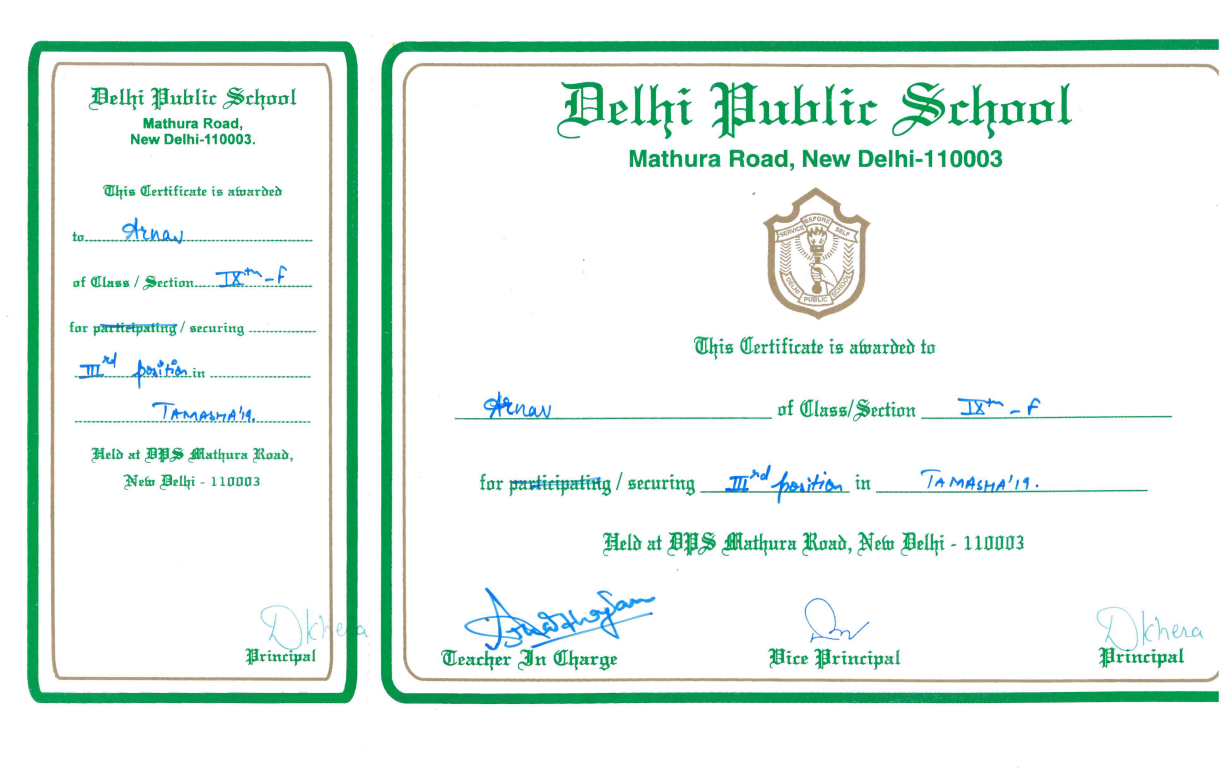 Delhi Public School
Mathura Road,
New Delhi-110003.
This Certificate is awarded
to Arnav
of Class / Section IXth - F
for participating / securing
IIIrd position in
TAMASHA'19.
Held at DPS Mathura Road,
New Delhi - 110003
Dkhera
Principal
Delhi Public School
Mathura Road, New Delhi-110003
SERVICE BEFORE SELF
DELHI PUBLIC SCHOOL
This Certificate is awarded to
Arnav of Class/Section IXth - F
for participating / securing IIIrd position in TAMASHA'19.
Held at DPS Mathura Road, New Delhi - 110003
Dkhera
Teacher In Charge Vice Principal Principal